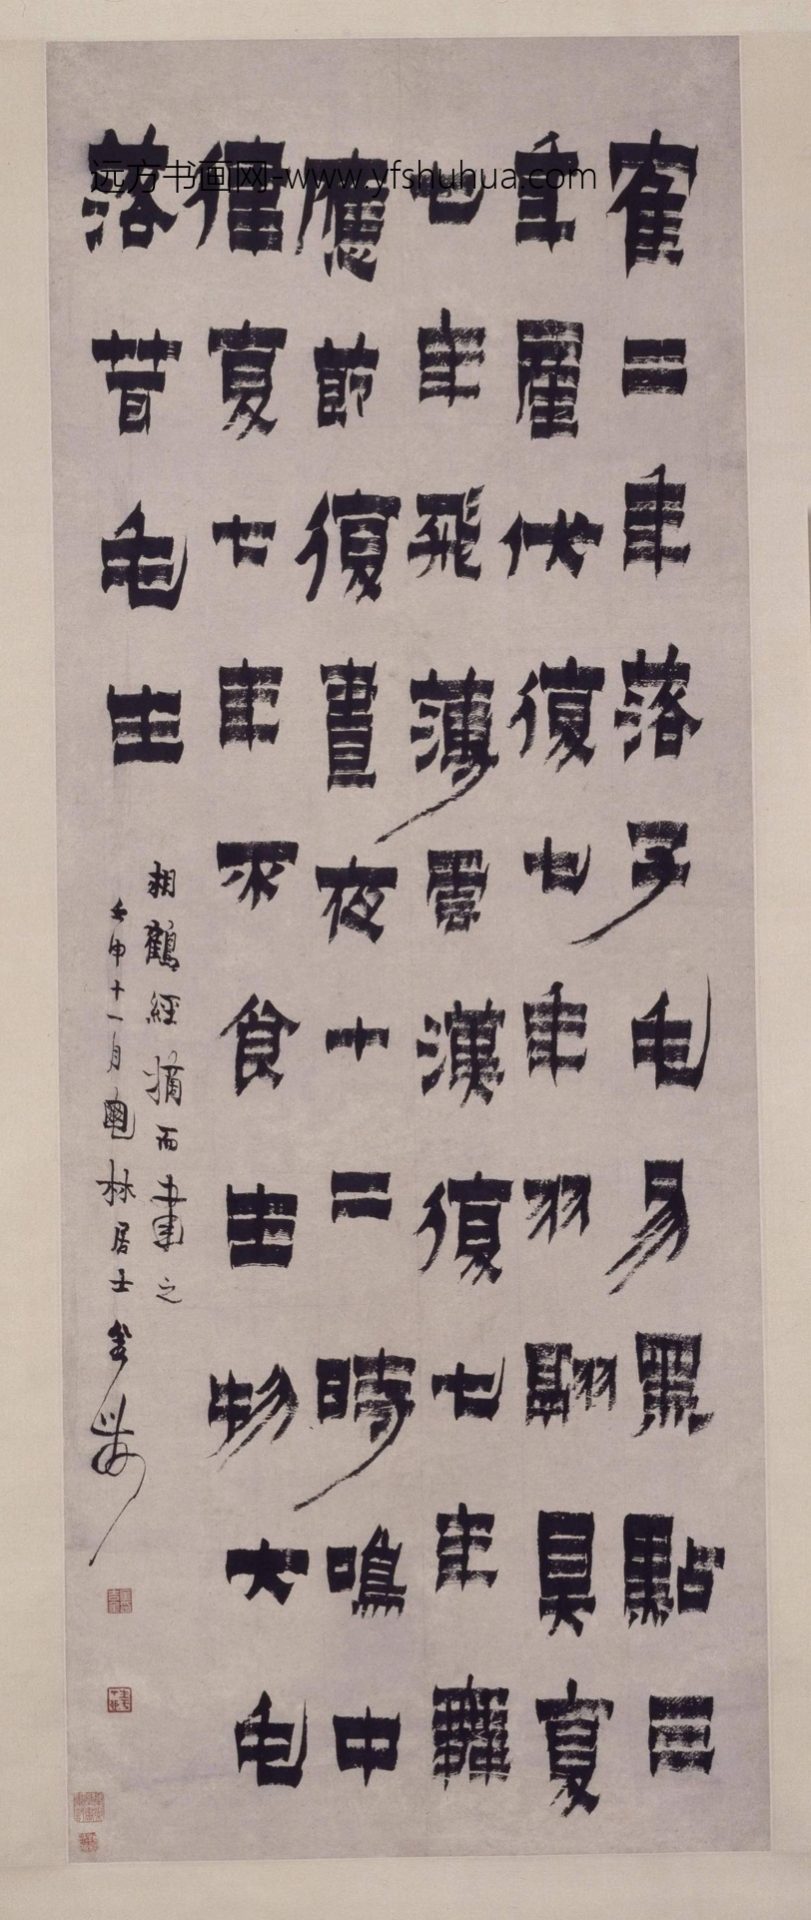 远方书画网-www.yfshuhua.com
寉二年落子毛易黑點三
年產伏復七年羽翮具复
七年飛薄雲漢復七年舞
應節復晝夜十二時鳴中
律复七年不食生物大毛
落茸毛生
相鶴經摘而書之
壬申十一月林居士金農